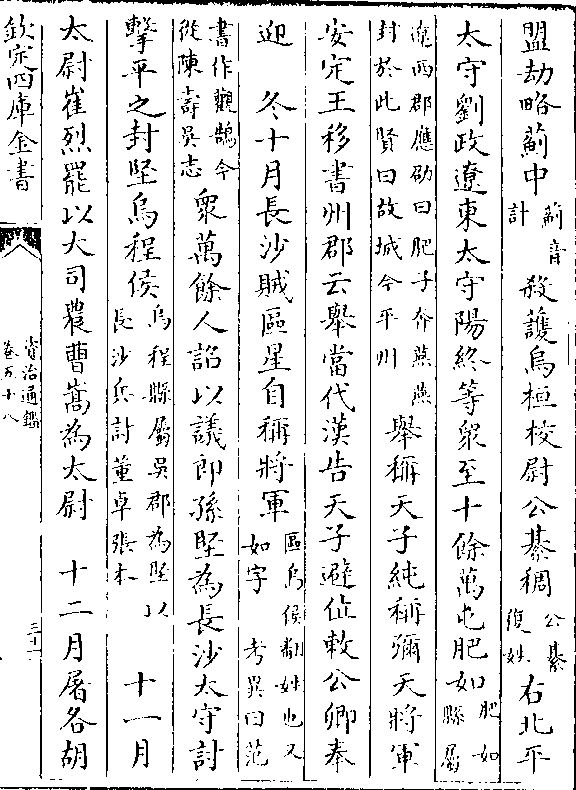 盟劫略薊中薊音計殺護烏桓校尉公綦稠公綦復姓右北平
太守劉政遼東太守陽終等衆至十餘萬屯肥如肥如縣屬
遼西郡應劭曰肥子奔燕燕封於此賢曰故城今平州舉稱天子純稱彌天將軍
安定王移書州郡云舉當代漢告天子避位敕公卿奉
迎　冬十月長沙賊區星自稱將軍區烏侯翻姓也又如字　考異曰范
書作觀鵠今從陳壽吳志衆萬餘人詔以議郎孫堅為長沙太守討
擊平之封堅烏程侯烏程縣屬吳郡為堅以長沙兵討董卓張本　十一月
太尉崔烈罷以大司農曹嵩為太尉　十二月屠各胡
欽定四庫全書
資治通鑑
卷五十八